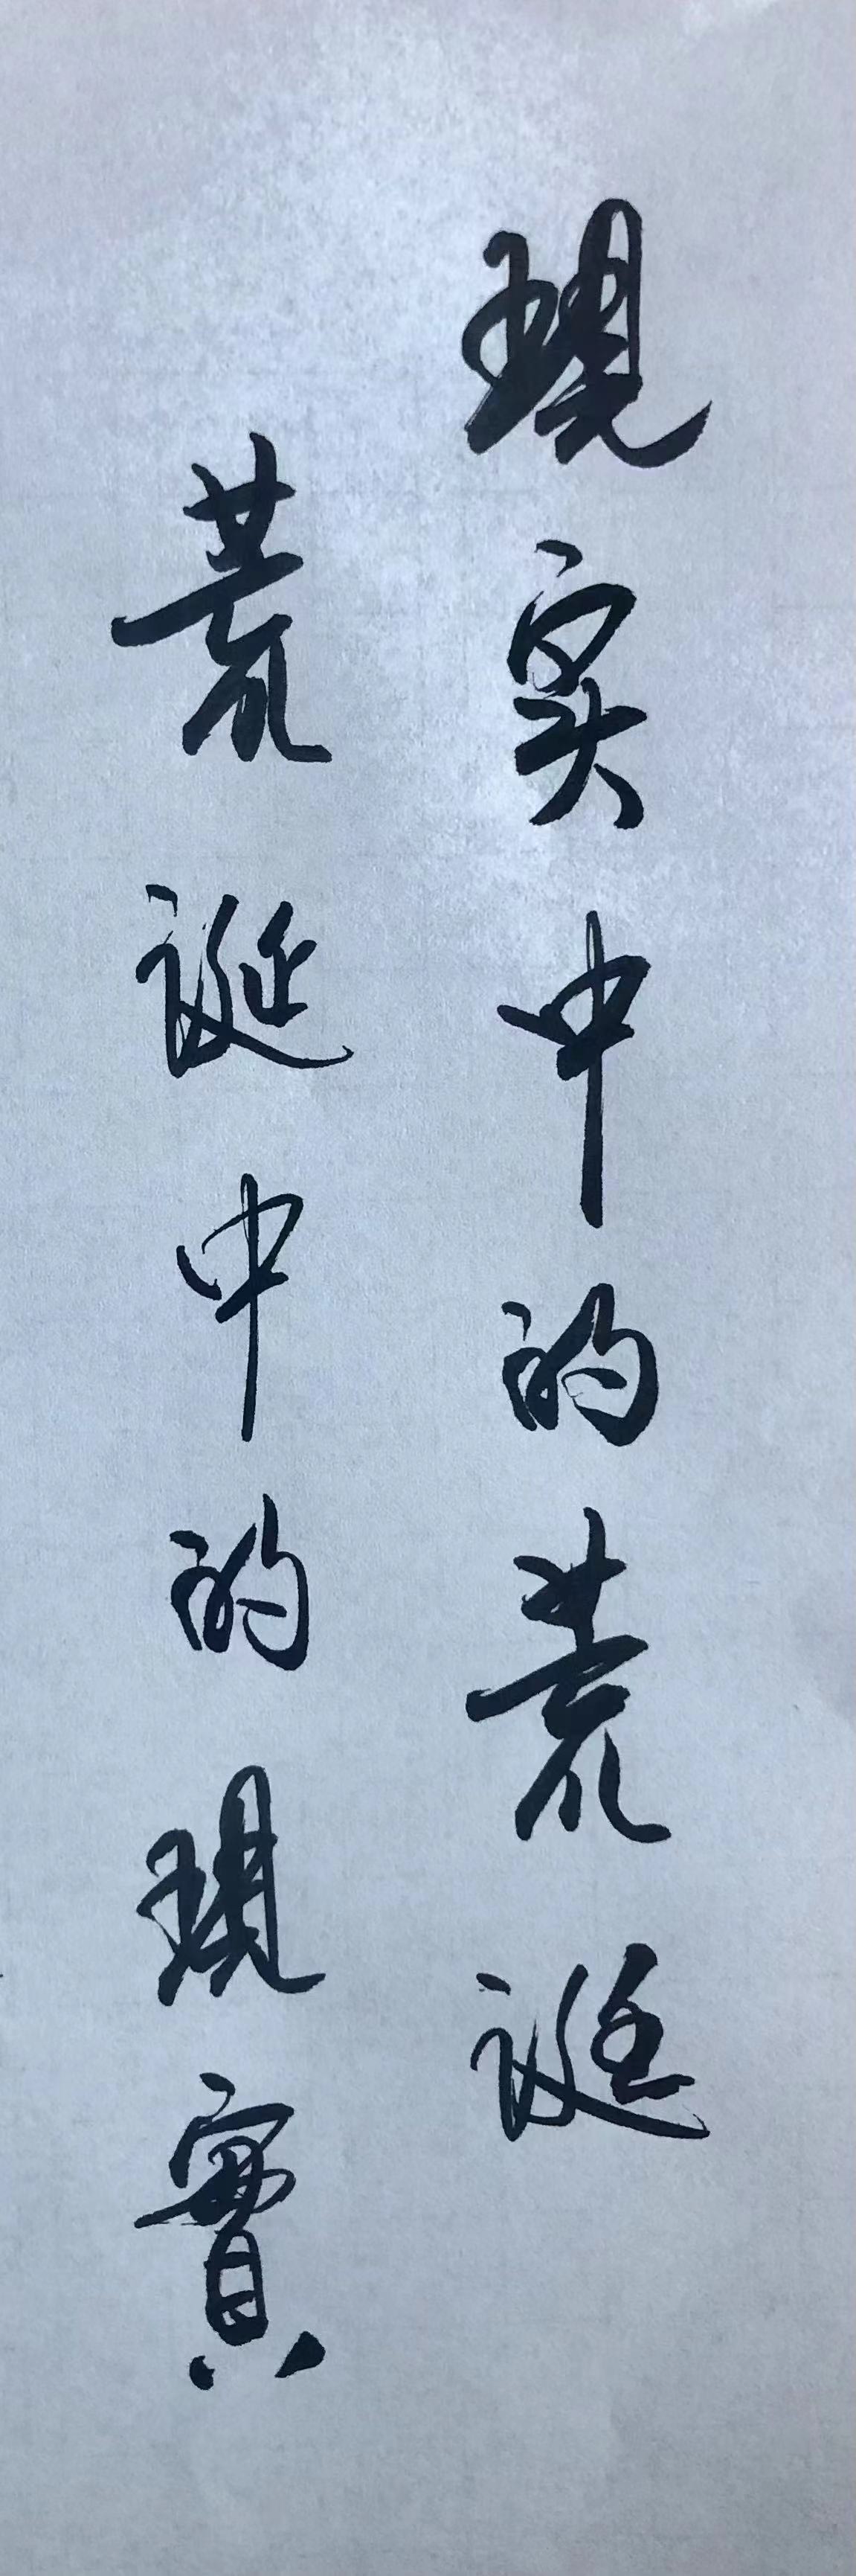 現实中的荒诞
荒诞中的現實